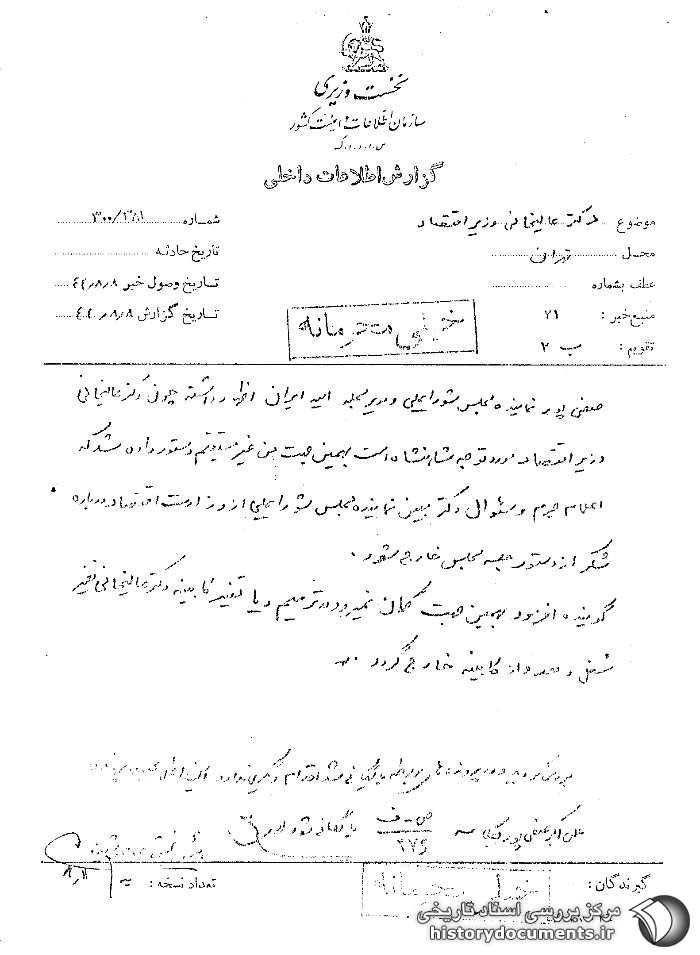 نخست وزیری
سازمان اطلاعات و امنیت کشور
س.ا.و.ا.ک
گزارش اطلاعات داخلی
موضوع دکتر عالیخانی وزیر اقتصاد
شماره ۳۰۰/۲۸۱
محل تهران
تاریخ حادثه
عطف بشماره
تاریخ وصول خبر ۴۲/۸/۸
منبع خبر : ۲۱
تاریخ گزارش ۴۲/۸/۸
تقویم : ب ۲
خیلی محرمانه
صفی پور نماینده مجلس شورایملی و مدیر مجله امید ایران اظهار داشته چون دکتر عالیخانی
وزیر اقتصاد مورد توجه شاهنشاه است بهمین جهت من غیر مستقیم دستور داده شد که
اعلام جرم و سئوال دکتر مبین نماینده مجلس شورایملی از وزارت اقتصاد درباره
شکر از دستور جلسه مجلس خارج شود .
گوینده افزود بهمین جهت گمان نمیرود در ترمیم و یا تغییر کابینه دکتر عالیخانی تغییر
شغل دهد و از کابینه خارج گردد .
علی اکبر صفی پور
ص-ف
۲۷۶
گیرندگان :
خیلی محرمانه
تعداد نسخه :
۸/۱۱
مرکز بررسی اسناد تاریخی
historydocuments.ir